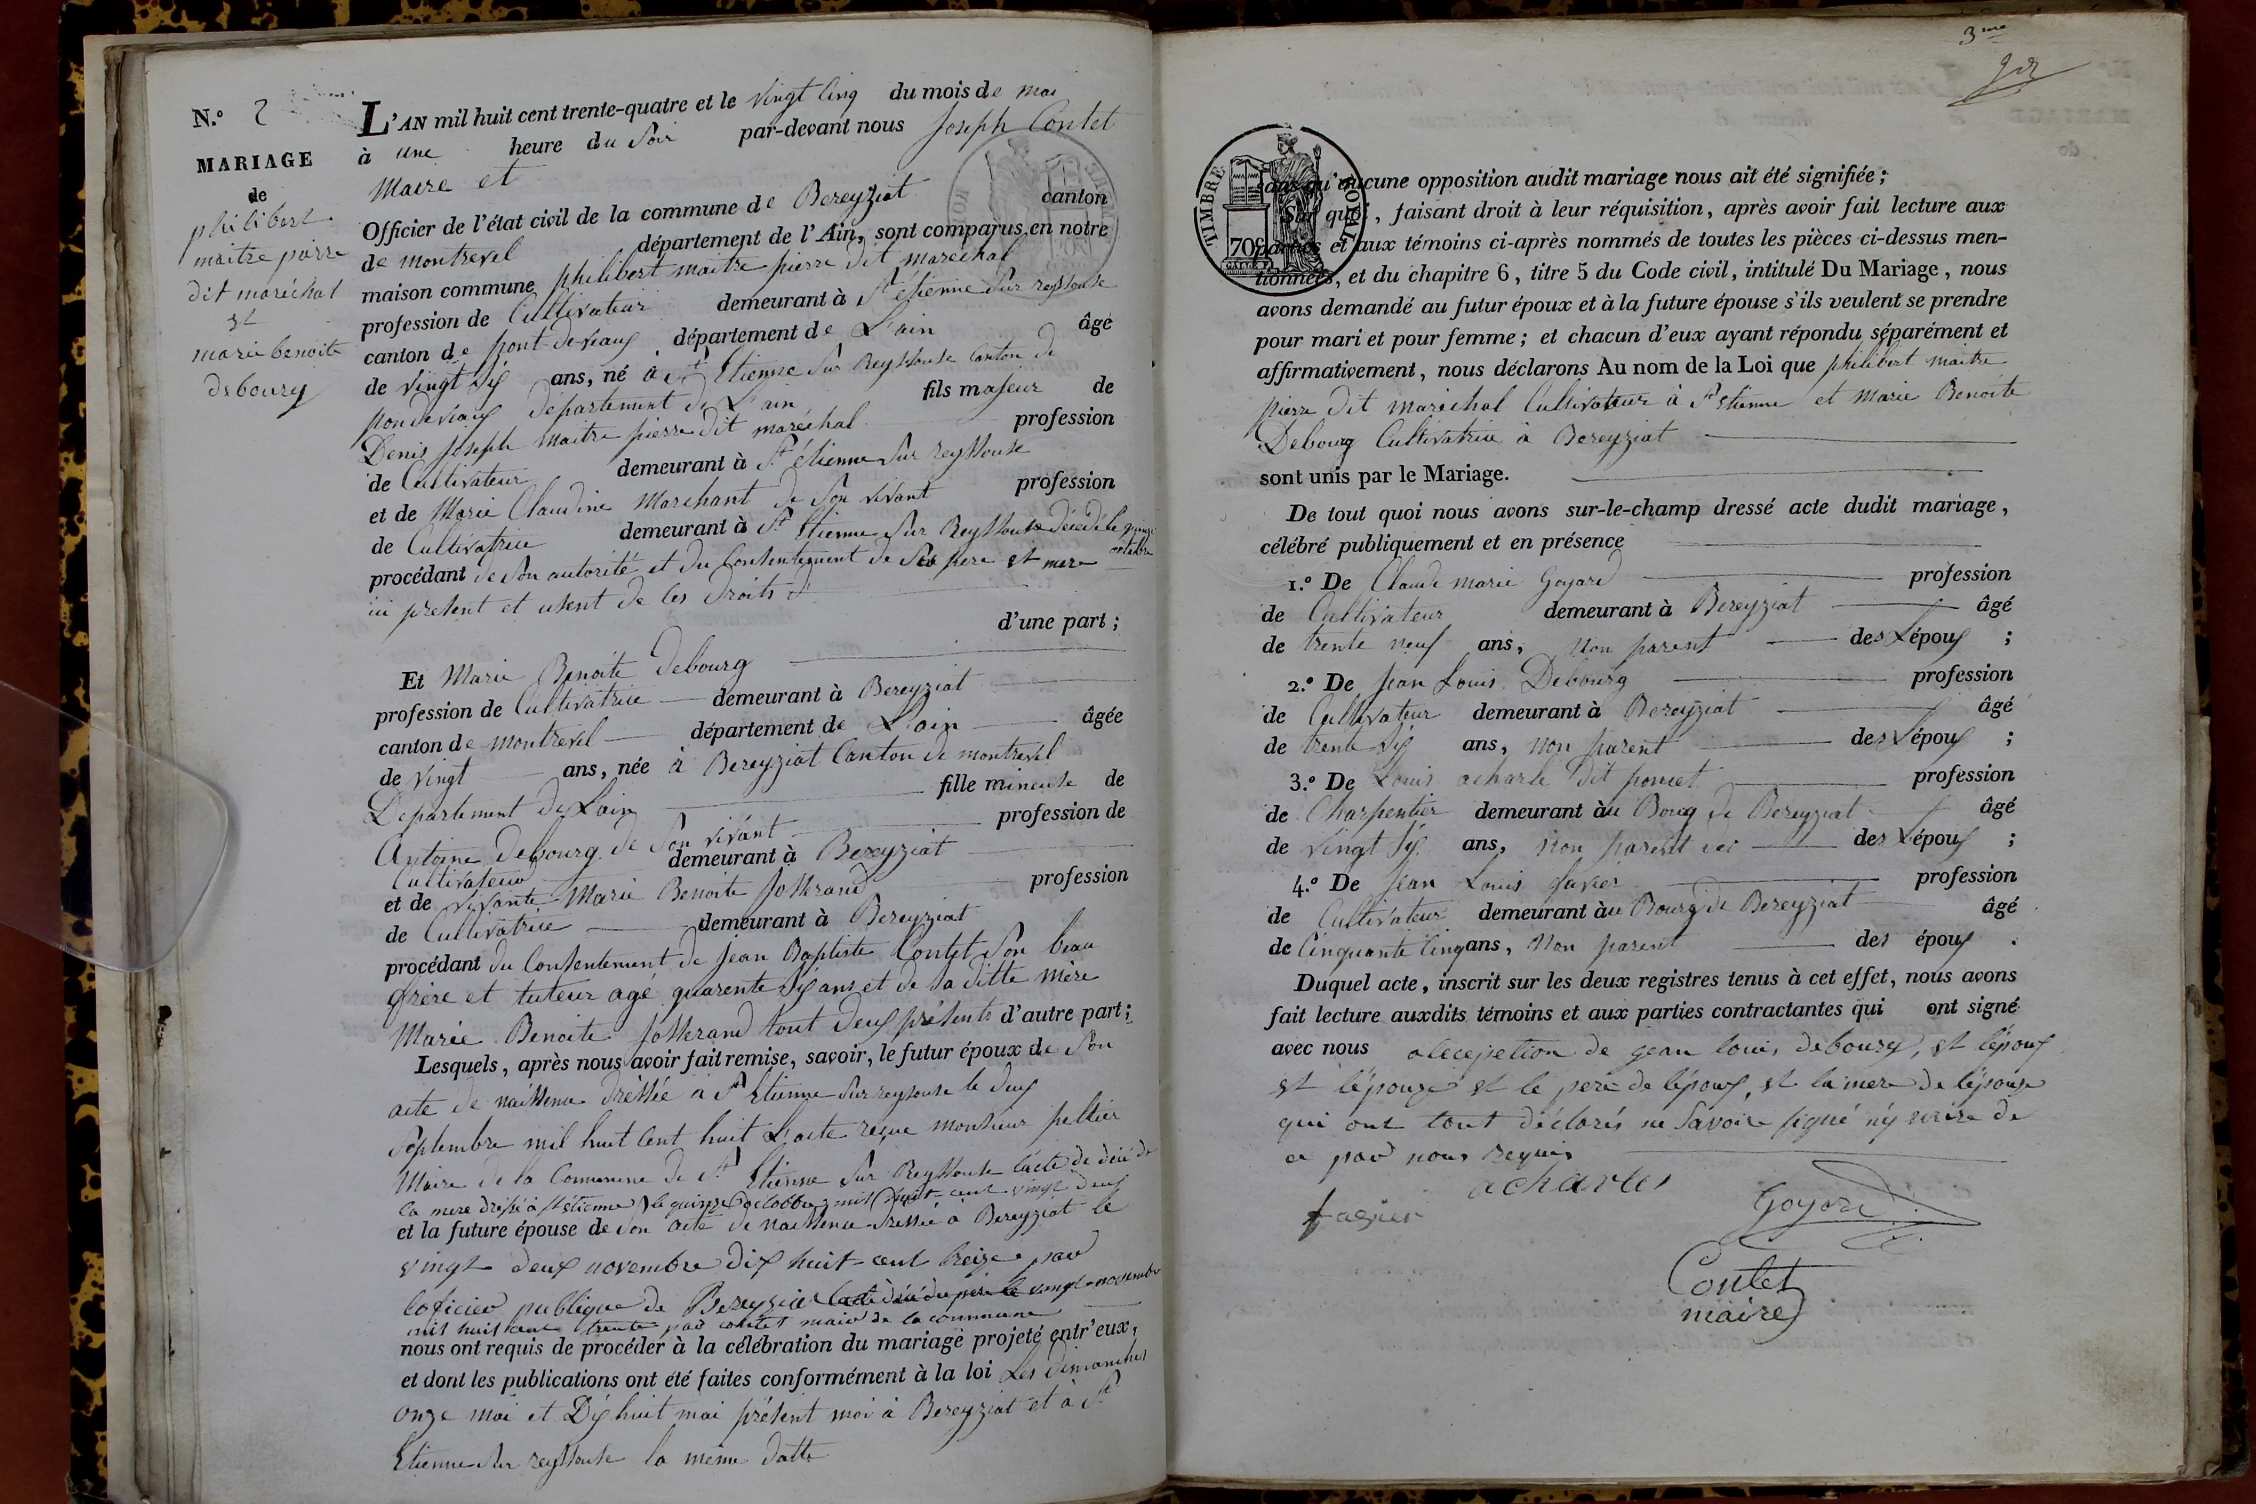 N.º 2
MARIAGE
de
philibert
maitre pierre
dit maréchal
et
marie benoite
debourg
L'AN mil huit cent trente-quatre et le vingt cinq du mois de mai
à une heure du soir par-devant nous Joseph Contet
Maire et
Officier de l'état civil de la commune de Bereyziat canton
de montrevel département de l'Ain, sont comparus en notre
maison commune philibert maitre pierre dit maréchal
profession de Cultivateur demeurant à St étienne sur reyssouse
canton de pont-de-vaux département de L'ain âgé
de vingt six ans, né à St Etienne sur Reyssouse Canton de
pondevaux département de L'ain fils majeur de
Denis Joseph Maitre pierre dit maréchal profession
de Cultivateur demeurant à St étienne sur reyssouse
et de Marie Claudine Marchant de son vivant profession
de Cultivatrice demeurant à St Etienne sur Reyssouse décédé le quinze octobre
procédant de son autorité et du Consentement de ses pere et mere
ici présent et usent de ces droits
d'une part ;
Et Marie Benoite Debourg
profession de Cultivatrice demeurant à Bereyziat
canton de montrevel département de L'ain âgée
de vingt ans, née à Bereyziat Canton de montrevel
Département de L'ain fille mineuse de
Antoine Debourg de son vivant profession de
Cultivateur demeurant à Bereyziat
et de vivante Marie Benoite Josserand profession
de Cultivatrice demeurant à Bereyziat
procédant du Consentement de Jean Baptiste Contet son beau
frère et tuteur agé quarente six ans et de sa ditte mère
Marie Benoite Josserand tout deux présents d'autre part ;
Lesquels, après nous avoir fait remise, savoir, le futur époux de son
acte de naissence dréssée a St Etienne sur reyssouse le deux
septembre mil huit cent huit L'acte reçue monsieur peltier
Maire de la Commune de St Etienne sur Reyssouse l'acte de décé de
la mere drésé à St étienne le quinze octobbre mil huit cent vingt deux
et la future épouse de son acte de naissence dressée à Bereyziat le
vingt deux novembre dix huit cent treize par
l'oficier publique de Bereyziat l'acte décé du père le vingt novembre
mil huit cent trente par contet maire de la commune
nous ont requis de procéder à la célébration du mariage projeté entr'eux,
et dont les publications ont été faites conformément à la loi Les dimanches
onze mai et Dix huit mai présent moi à Bereyziat et à St
Etienne sur reyssouse la même datte
3me
TIMBRE ROYAL
70c
sans qu'aucune opposition audit mariage nous ait été signifiée ;
Sur quoi, faisant droit à leur réquisition, après avoir fait lecture aux
parties et aux témoins ci-après nommés de toutes les pièces ci-dessus men-
tionnées, et du chapitre 6, titre 5 du Code civil, intitulé Du Mariage, nous
avons demandé au futur époux et à la future épouse s'ils veulent se prendre
pour mari et pour femme ; et chacun d'eux ayant répondu séparément et
affirmativement, nous déclarons Au nom de la Loi que philibert maitre
pierre dit maréchal Cultivateur à St Etienne et Marie Benoite
Debourg Cultivatrice à Bereyziat
sont unis par le Mariage.
De tout quoi nous avons sur-le-champ dressé acte dudit mariage,
célébré publiquement et en présence
1.º De Claude marie Goyard profession
de Cultivateur demeurant à Bereyziat âgé
de trente neuf ans, Non parent des L'époux ;
2.º De Jean Louis Debourg profession
de Cultivateur demeurant à Bereyziat âgé
de trente six ans, non parent des L'époux ;
3.º De Louis acharle dit poncet profession
de Charpentier demeurant àu Bourg de Bereyziat âgé
de vingt six ans, Non parent des L'époux ;
4.º De Jean Louis favier profession
de Cultivateur demeurant àu Bourg de Bereyziat âgé
de Cinquante cinq ans, Non parent des époux .
Duquel acte, inscrit sur les deux registres tenus à cet effet, nous avons
fait lecture auxdits témoins et aux parties contractantes qui ont signé
avec nous a lecepetion de gean louis debourg, et l'époux
et l'épouze et le père de lépoux, et la mere de lépouse
qui ont tout déclarés ne savoir signé ny écrire de
ce par nous requis
acharles
favier
Goyard
Contet
maire